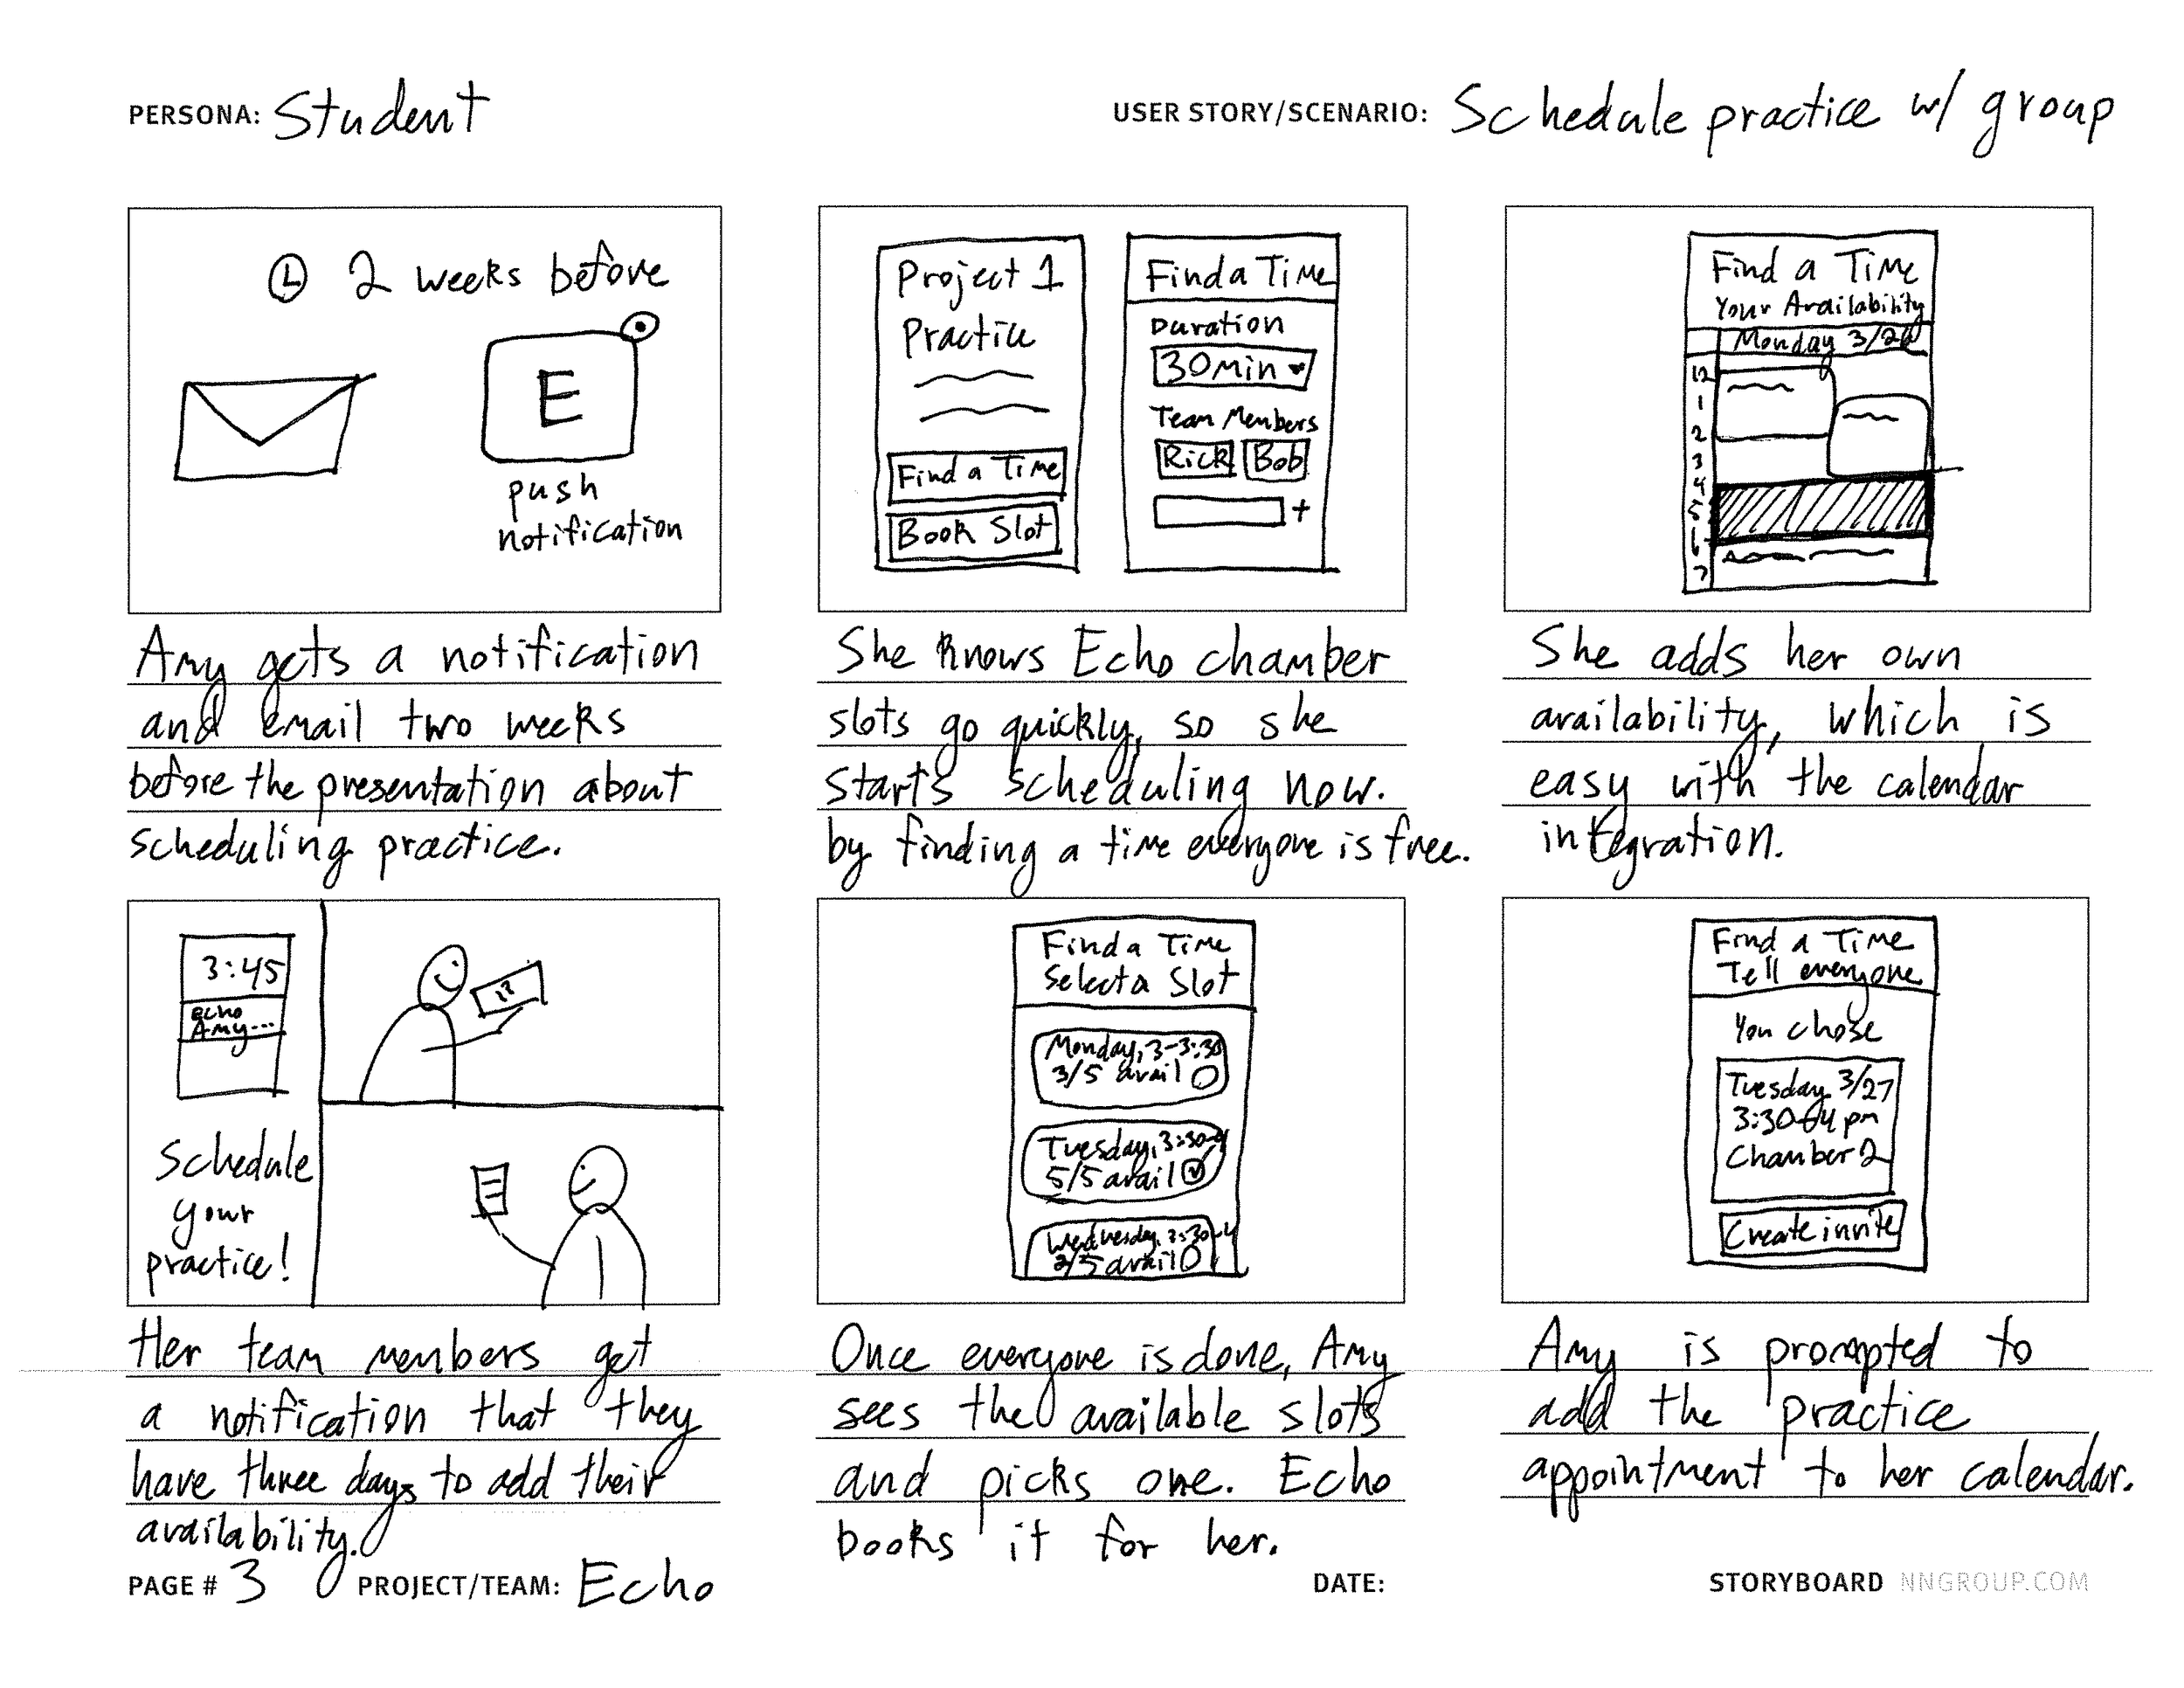 PERSONA: Student
USER STORY/SCENARIO: Schedule practice w/ group
2 weeks before
E
push
notification
Amy gets a notification
and email two weeks
before the presentation about
scheduling practice.
Project 1
Practice
Find a Time
Book Slot
Find a Time
Duration
30 Min
Team Members
Rick Bob
+
She knows Echo chamber
slots go quickly, so she
starts scheduling now.
by finding a time everyone is free.
Find a Time
Your Availability
Monday 3/26
12
1
2
3
4
5
6
7
She adds her own
availability, which is
easy with the calendar
integration.
3:45
Echo
Amy...
Schedule
your
practice!
Her team members get
a notification that they
have three days to add their
availability.
Find a Time
Select a Slot
Monday, 3-3:30
3/5 avail
Tuesday, 3:30-4
5/5 avail
Wednesday, 3:30-4
avail
Once everyone is done, Amy
sees the available slots
and picks one. Echo
books it for her.
Find a Time
Tell everyone
You chose
Tuesday 3/27
3:30-4 pm
Chamber 2
Create invite
Amy is prompted to
add the practice
appointment to her calendar.
PAGE # 3 PROJECT/TEAM: Echo
DATE:
STORYBOARD NNGROUP.COM